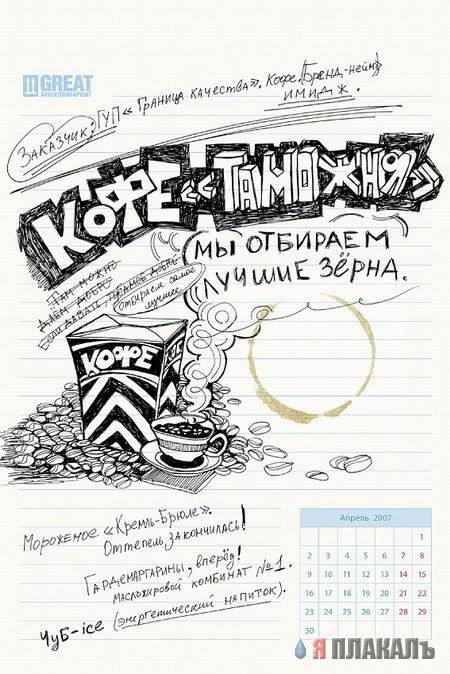 GREAT
ADVERTISING&PRINT
Заказчик: ГУП «Граница качества». Кофе. (Бренд-нейм)
ИМИДЖ.
КОФЕ «ТАМОЖНЯ»
МЫ ОТБИРАЕМ
ЛУЧШИЕ ЗЁРНА.
ТАМ МОЖНО
ДАЁМ ДОБРО
ЕСЛИ ДАВАТЬ, ДОБРО
отбираем самое
лучшее
КОФЕ
Мороженое «Кремль-Брюле».
Оттепель закончилась!
Гардемаргарины, вперёд!
масложировой комбинат №1.
ЧуБ-ice (энергетический напиток).
Апрель 2007
1
2 3 4 5 6 7 8
9 10 11 12 13 14 15
16 17 18 19 20 21 22
23 24 25 26 27 28 29
30
Я ПЛАКАЛЪ